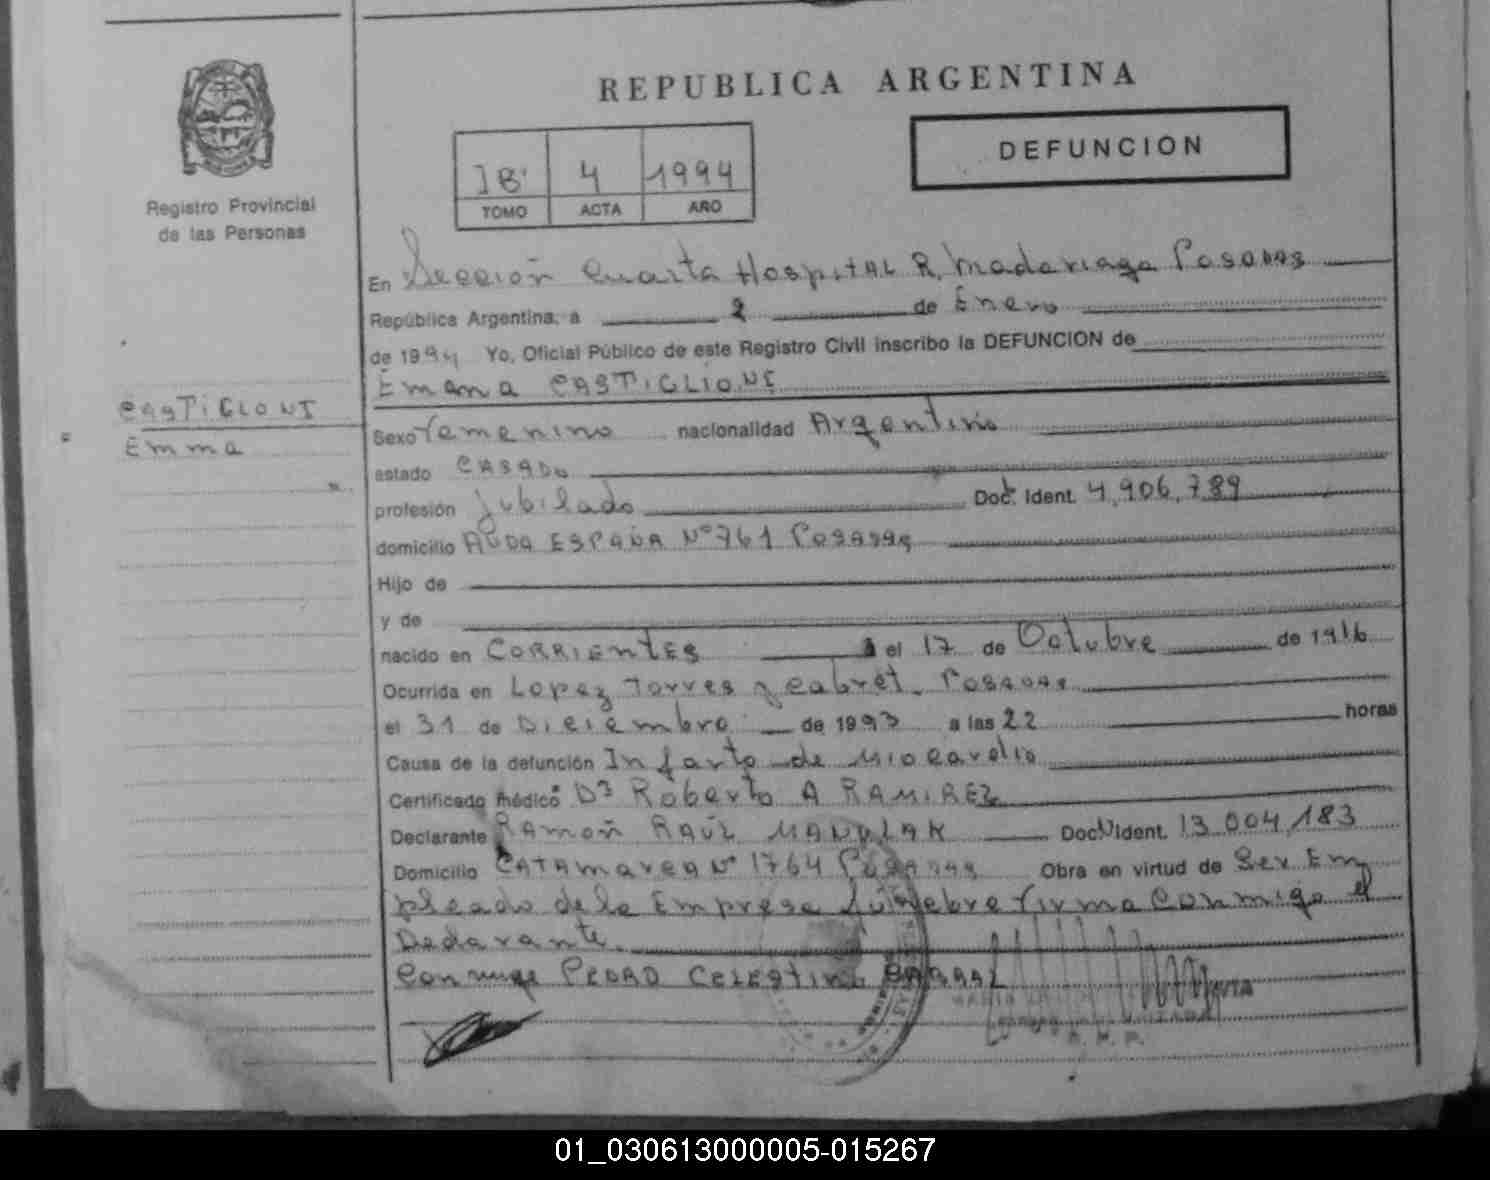 REPUBLICA ARGENTINA
DEFUNCION
IB' 4 1994
TOMO ACTA AÑO
Registro Provincial
de las Personas
En Sección Cuarta Hospital R. Madariaga Posadas
República Argentina, a 2 de Enero
de 1994 Yo, Oficial Público de este Registro Civil inscribo la DEFUNCION de
Emana CASTIGLIONI
CASTIGLIONI
Emma
Sexo Femenino nacionalidad Argentino
estado CASADO
profesión Jubilado Doc. Ident. 4,906,789
domicilio AVDA ESPAÑA Nº 761 Posadas
Hijo de
y de
nacido en CORRIENTES el 17 de Octubre de 1916
Ocurrida en Lopez Torres y Cabret. Posadas
el 31 de Diciembre de 1993 a las 22 horas
Causa de la defunción Infarto de Miocardio
Certificado médico Dr Roberto A RAMIREZ
Declarante Ramoñ RAÚL MANULAK Doc. Ident. 13.004,183
Domicilio CATAMARCA Nº 1764 Posadas Obra en virtud de Ser Em
pleado de la Empresa Fúnebre Firma Conmigo el
Declarante.
Conyuge PEDRO CELESTINO
01_030613000005-015267